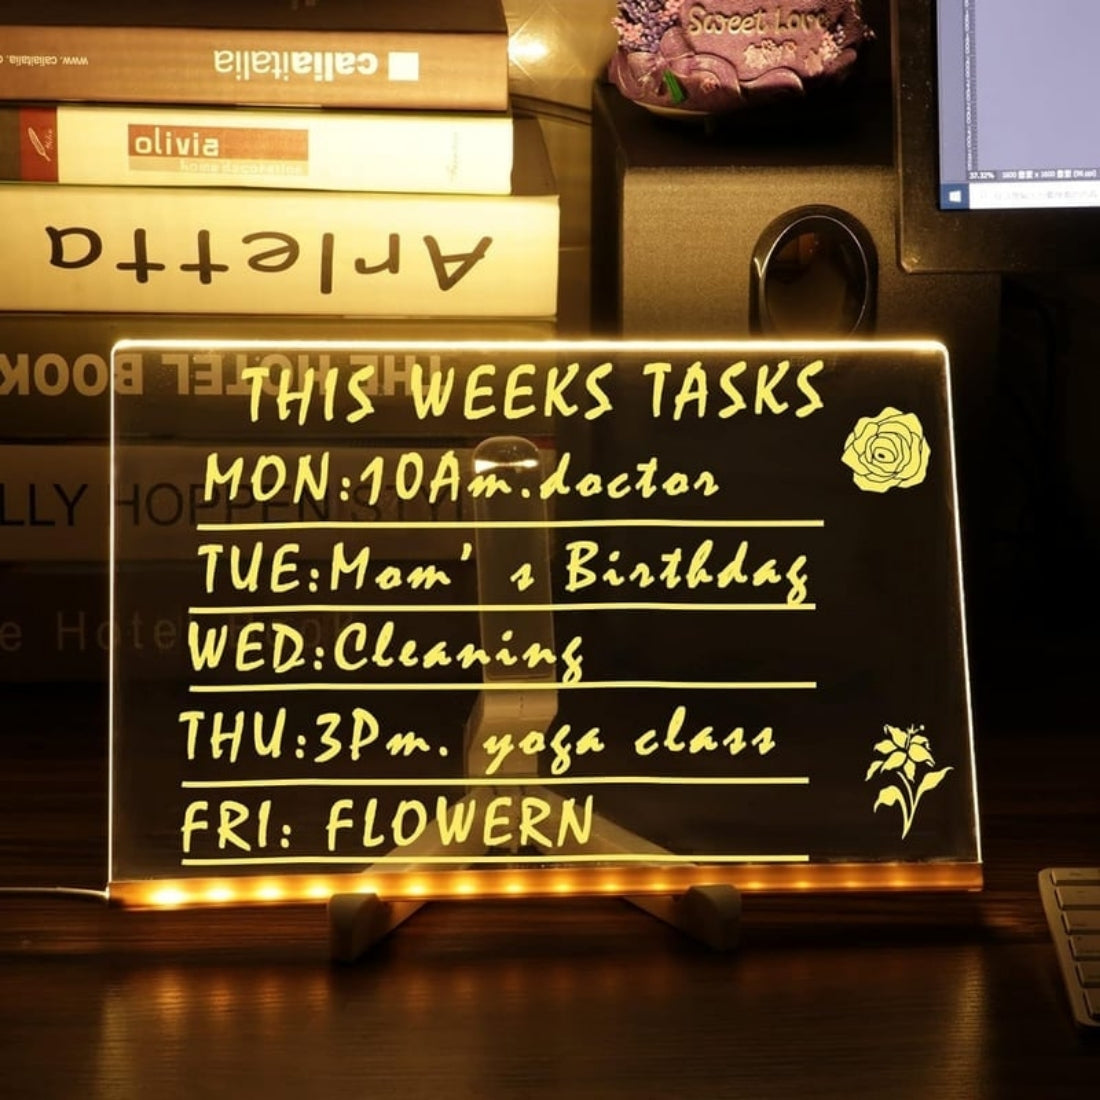 www.caliaitalia.
caliaitalia
olivia
home decoration
Arletta
THE HOTEL BOOK
LLY HOPPEN STYL
e Hotel Book
Sweet Love
37.32%
THIS WEEKS TASKS
MON:10Am.doctor
TUE:Mom's Birthday
WED:Cleaning
THU:3Pm. yoga class
FRI: FLOWERN